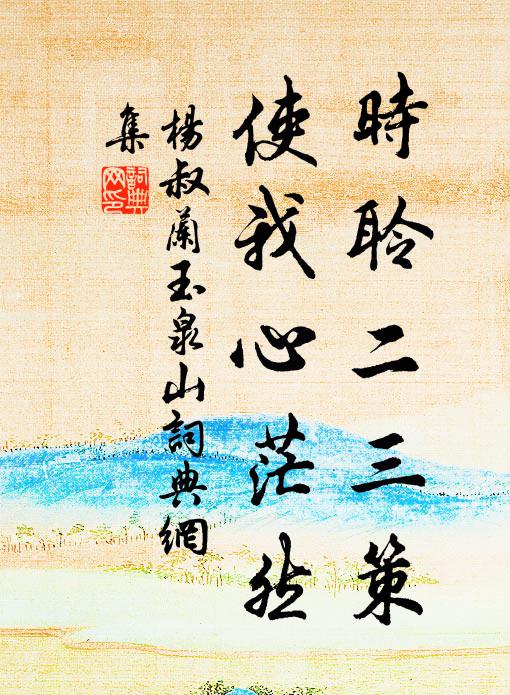 時聆二三策
使我心茫然
楊叔蘭玉泉山詞典網
集
詞典网印